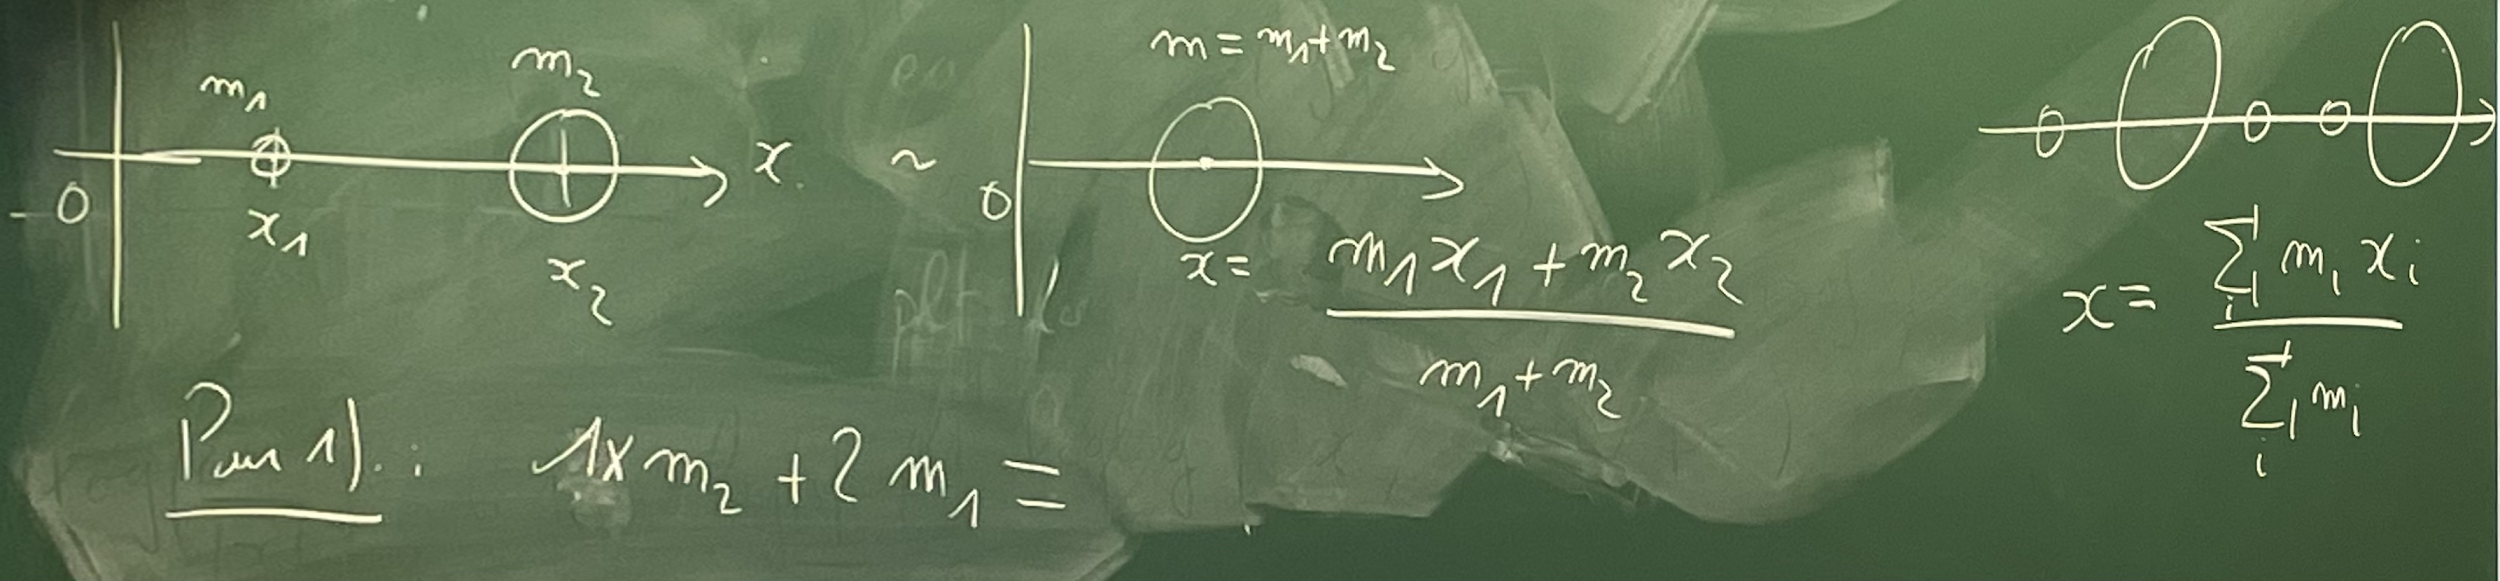 m₁ m₂ x
0 x₁ x₂
~
m = m₁ + m₂
0
x = (m₁x₁ + m₂x₂) / (m₁ + m₂)
x = (∑ᵢ mᵢ xᵢ) / (∑ᵢ mᵢ)
Pour 1) : 1 × m₂ + 2 m₁ =